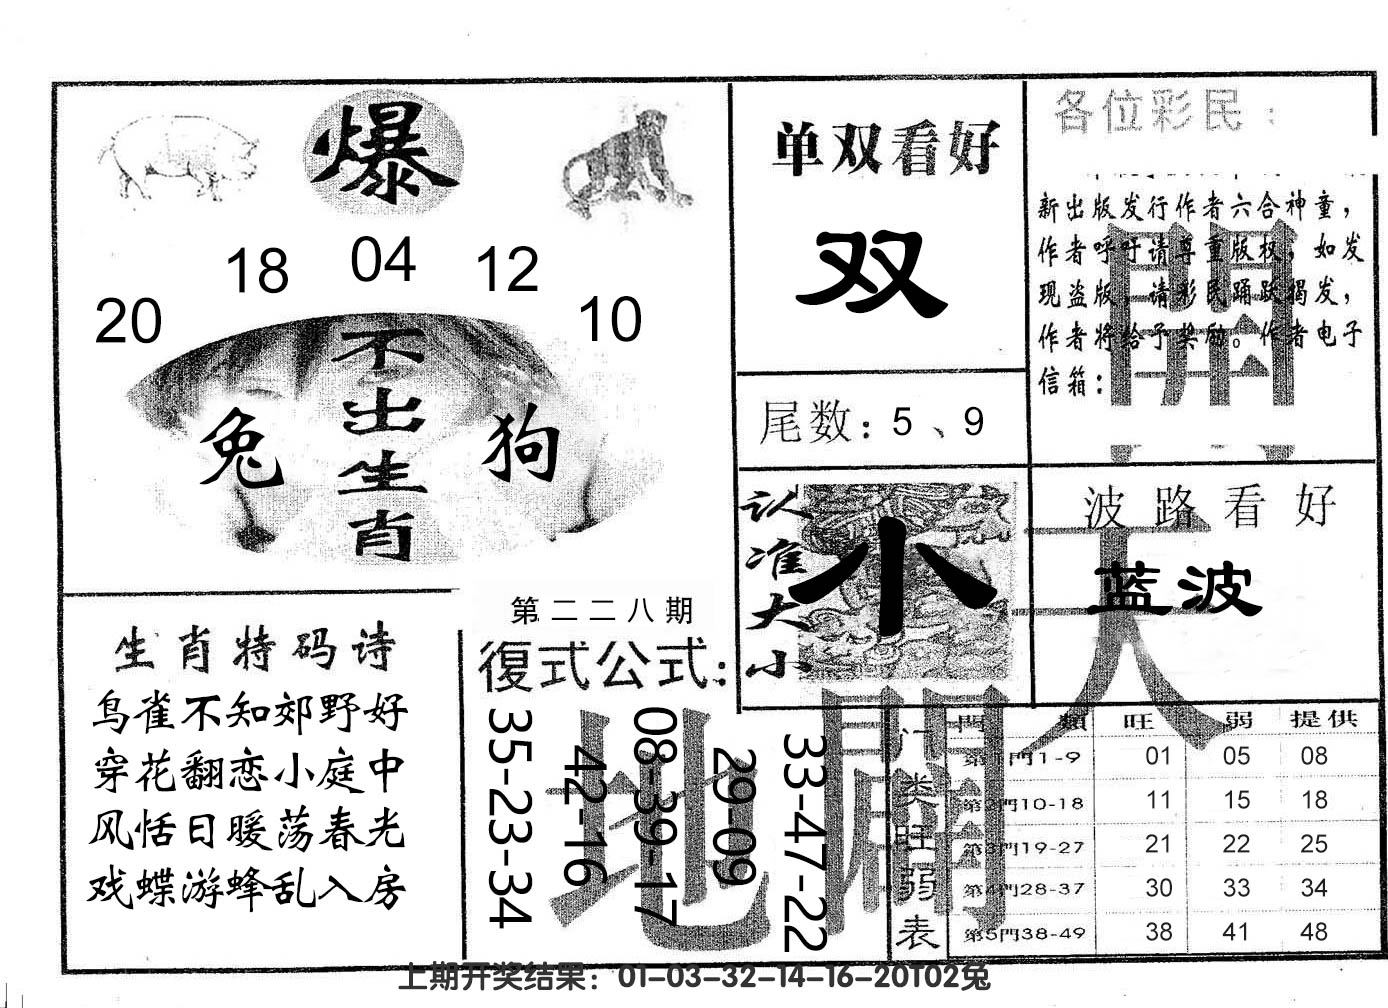 爆
20 18 04 12 10
不出生肖
兔 狗
单双看好
双
尾数：5、9
各位彩民：
新出版发行作者六合神童，
作者呼吁请尊重版权，如发
现盗版，请彩民踊跃揭发，
作者将给予奖励。作者电子
信箱：
認准大小
小
波路看好
蓝波
生肖特码诗
鸟雀不知郊野好
穿花翻恋小庭中
风恬日暖荡春光
戏蝶游蜂乱入房
第二二八期
復式公式：
35-23-34
42-16
08-39-17
29-09
33-47-22
天開地闢
门类旺弱表
門類 旺 弱 提供
第1門1-9 01 05 08
第2門10-18 11 15 18
第3門19-27 21 22 25
第4門28-37 30 33 34
第5門38-49 38 41 48
上期开奖结果：01-03-32-14-16-20T02兔